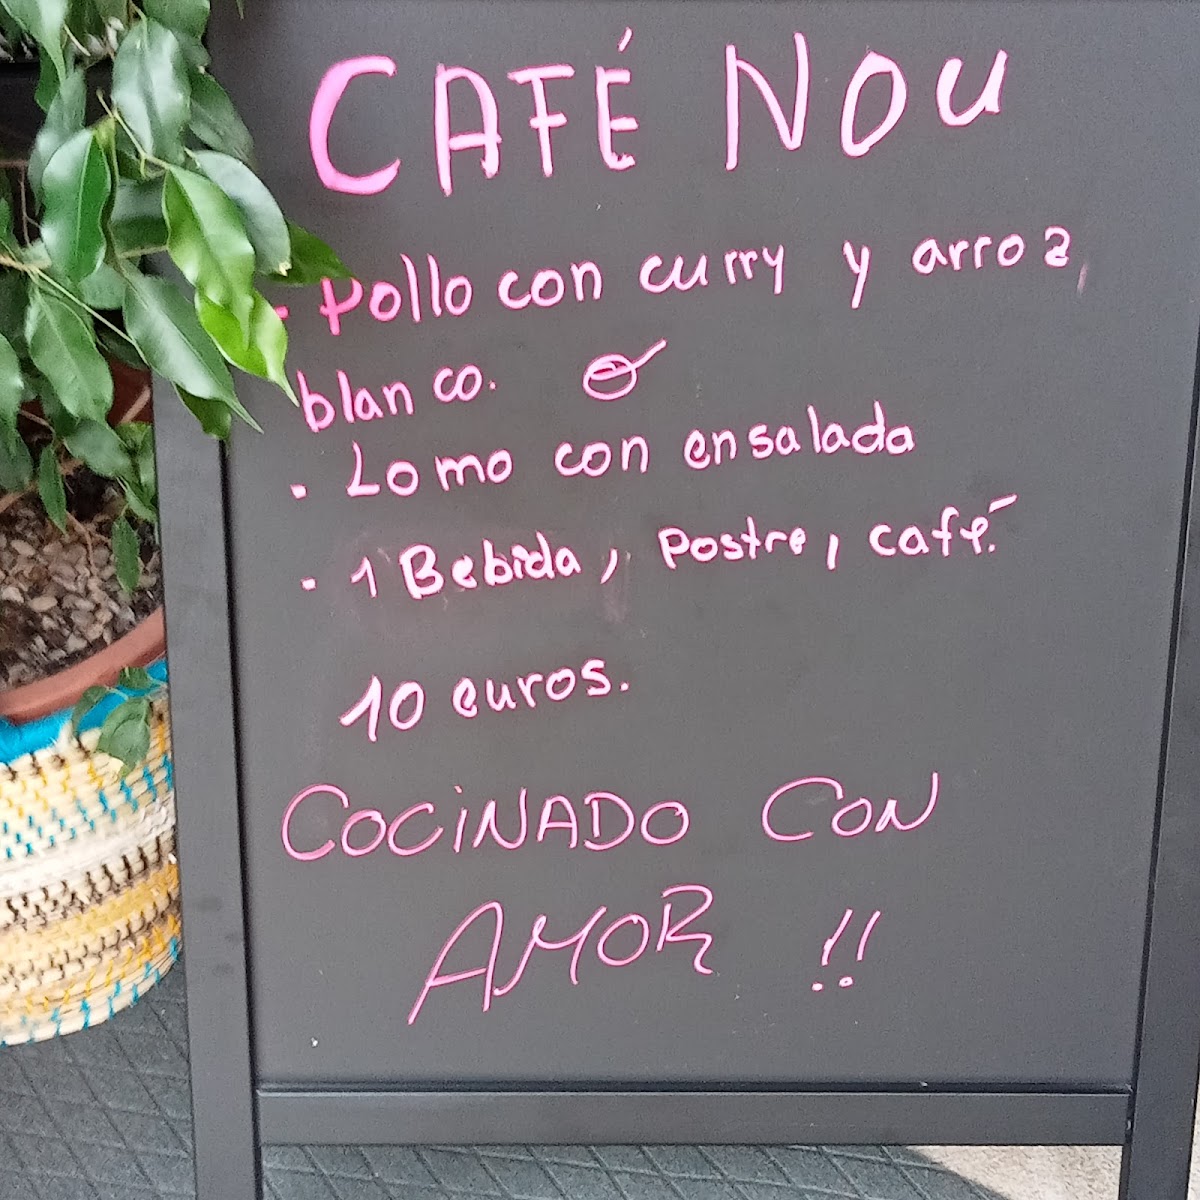 CAFÉ NOU
- Pollo con curry y arroz
blanco.
. Lomo con ensalada
. 1 Bebida, Postre, café.
10 euros.
COCiNADO CON
AMOR !!